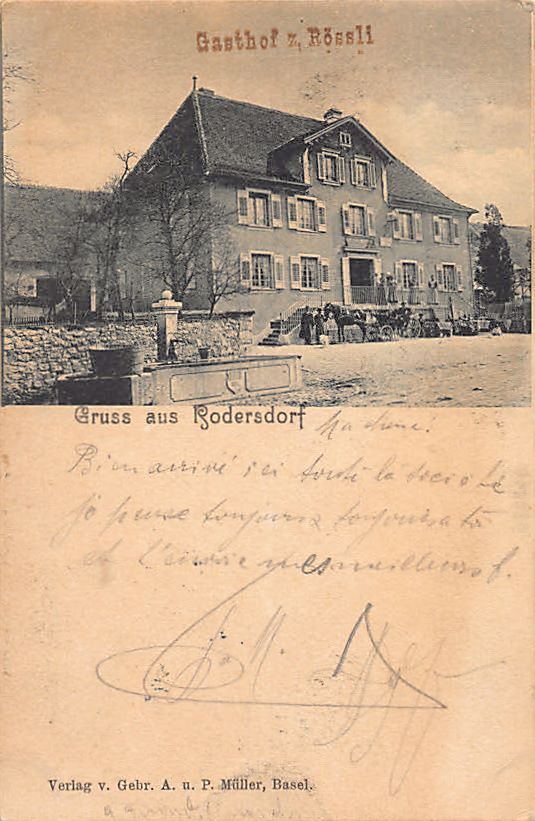 Gasthof z. Rössli
Gruss aus Rodersdorf
Bien arrivé ici toute la société
je pense toujours toujours a toi
et t'envoie mes meilleurs
Verlag v. Gebr. A. u. P. Müller, Basel.